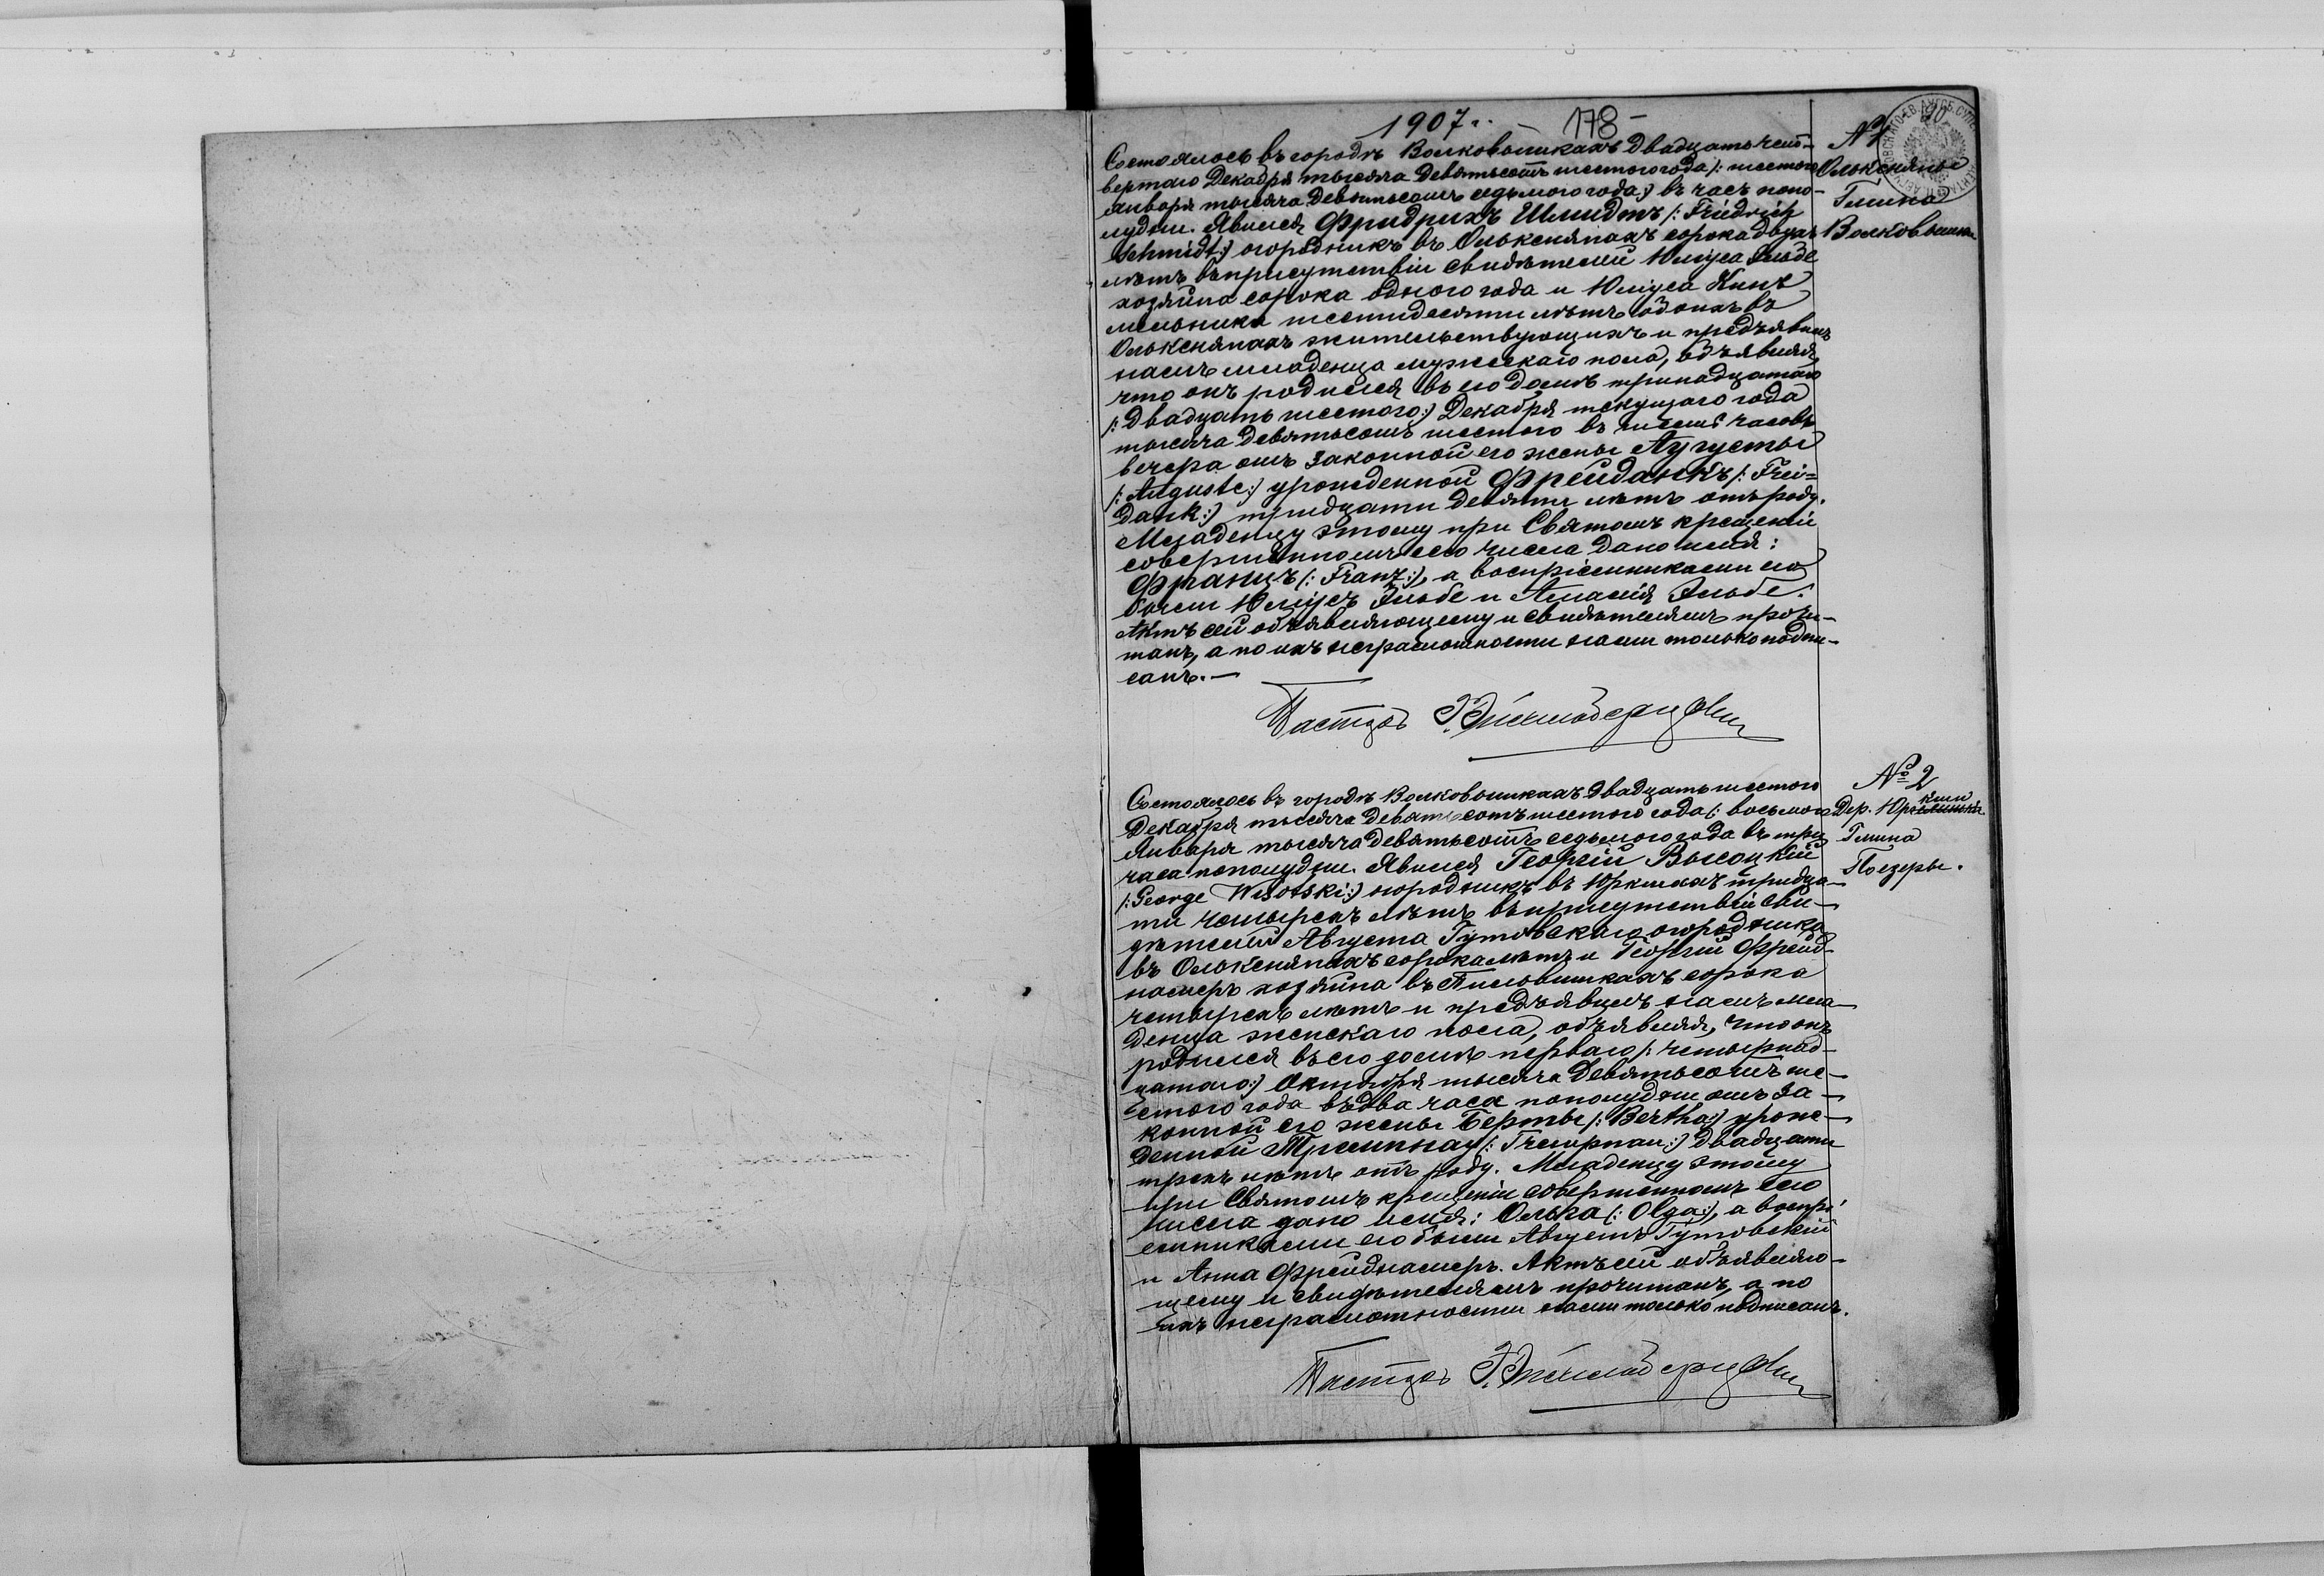 1907 г. - 178 -
90
№ 1
Олькеняны
Гмина
Волковышки
Состоялось въ городѣ Волковышкахъ двадцать чет-
вертаго Декабря тысяча девятьсотъ шестого года /: шестого
Января тысяча девятьсотъ седьмого года:/ въ часъ попо-
лудни. Явился Фридрихъ Шмидтъ /: Friedrich
Schmidt:/ огородникъ въ Олькеняпахъ сорока двухъ
лѣтъ въ присутствіи свидѣтелей Юлiуса Эльбе
хозяина сорока одного года и Юлiуса Кинѣ
мельника шестидесяти лѣтъ обоихъ въ
Олькеняпахъ жительствующихъ и предъявилъ
намъ младенца мужескаго пола, объявляя,
что онъ родился въ его домѣ тринадцатаго
/: двадцать шестого:/ Декабря текущаго года
тысяча девятьсотъ шестого въ шесть часовъ
вечера отъ законной его жены Аугусты
/: Auguste:/ урожденной Фрейданкъ /: Frei-
dank:/ тридцати девяти лѣтъ отъ роду.
Младенцу этому при Святомъ крещеніи
совершенномъ сего числа дано имя:
Францъ /: Franz:/, а воспріемниками его
были Юлiусъ Эльбе и Амалія Эльбе.
Актъ сей объявляющему и свидѣтелямъ прочи-
танъ, а по ихъ неграмотности нами только подпи-
санъ. —
Пасторъ
№ 2
Дер. Юркши
Гмина
Поезеры.
Состоялось въ городѣ Волковышкахъ двадцать шестого
Декабря тысяча девятьсотъ шестого года /: восьмого
Января тысяча девятьсотъ седьмого года въ три
часа пополудни. Явился Георгій Высоцкій
/: George Wisotski:/ огородникъ въ Юркшахъ тридца-
ти четырехъ лѣтъ въ присутствіи сви-
дѣтелей Августа Гутовскаго огородника
въ Олькеняпахъ сорока лѣтъ и Георгій Фрейд-
намеръ хозяина въ Пиловишкахъ сорока
четырехъ лѣтъ и предъявилъ намъ мла-
денца женскаго пола, объявляя, что онъ
родился въ его домѣ перваго /: четырнад-
цатаго:/ Октября тысяча девятьсотъ ше-
стого года въ два часа пополудни отъ за-
конной его жены Берты /: Bertha:/ урож-
денной двадцати
трехъ лѣтъ отъ роду. Младенцу этому
при Святомъ крещеніи совершенномъ сего
числа дано имя: Ольга /: Olga:/, а воспрі-
емниками его были Августъ Гутовскій
и Анна Фрейднамеръ. Актъ сей объявляю-
щему и свидѣтелямъ прочитанъ, а по
ихъ неграмотности нами только подписанъ.
Пасторъ